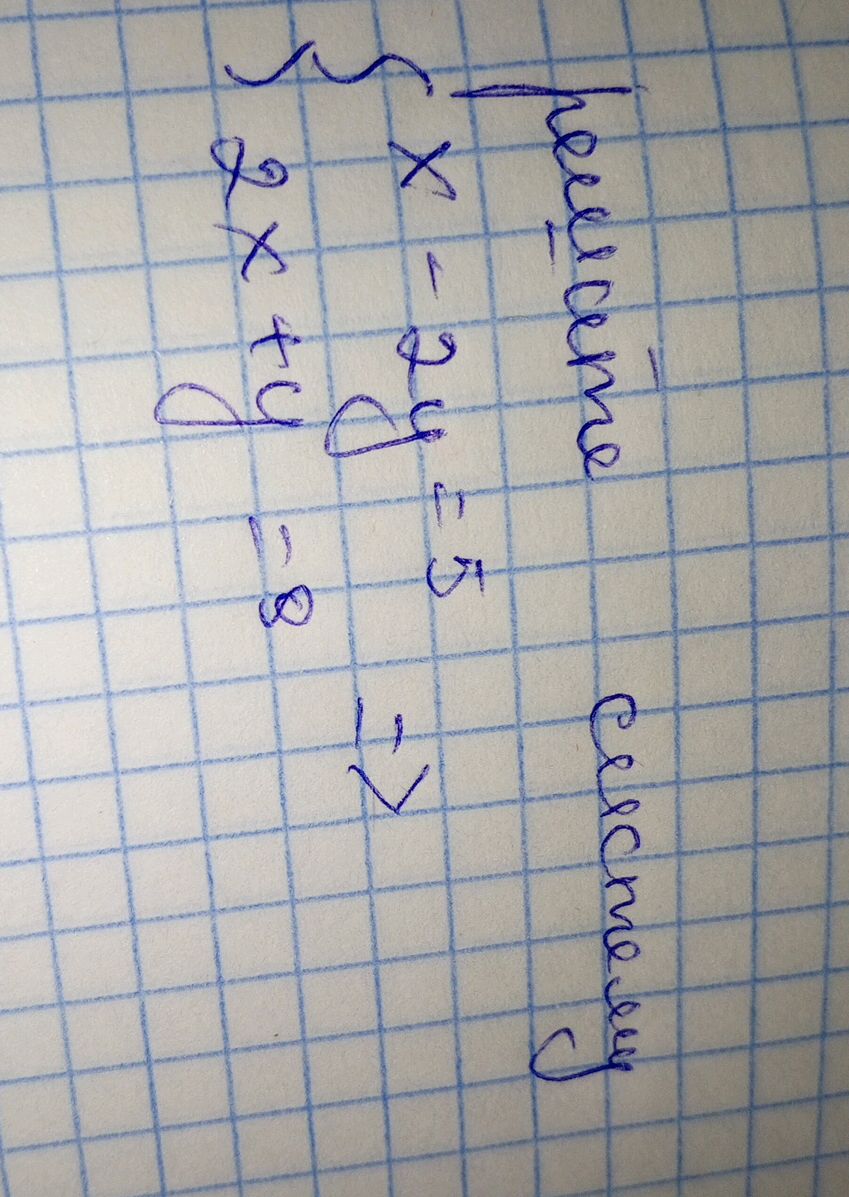 Решите систему
{ x - 2y = 5
2x + y = 8 =>